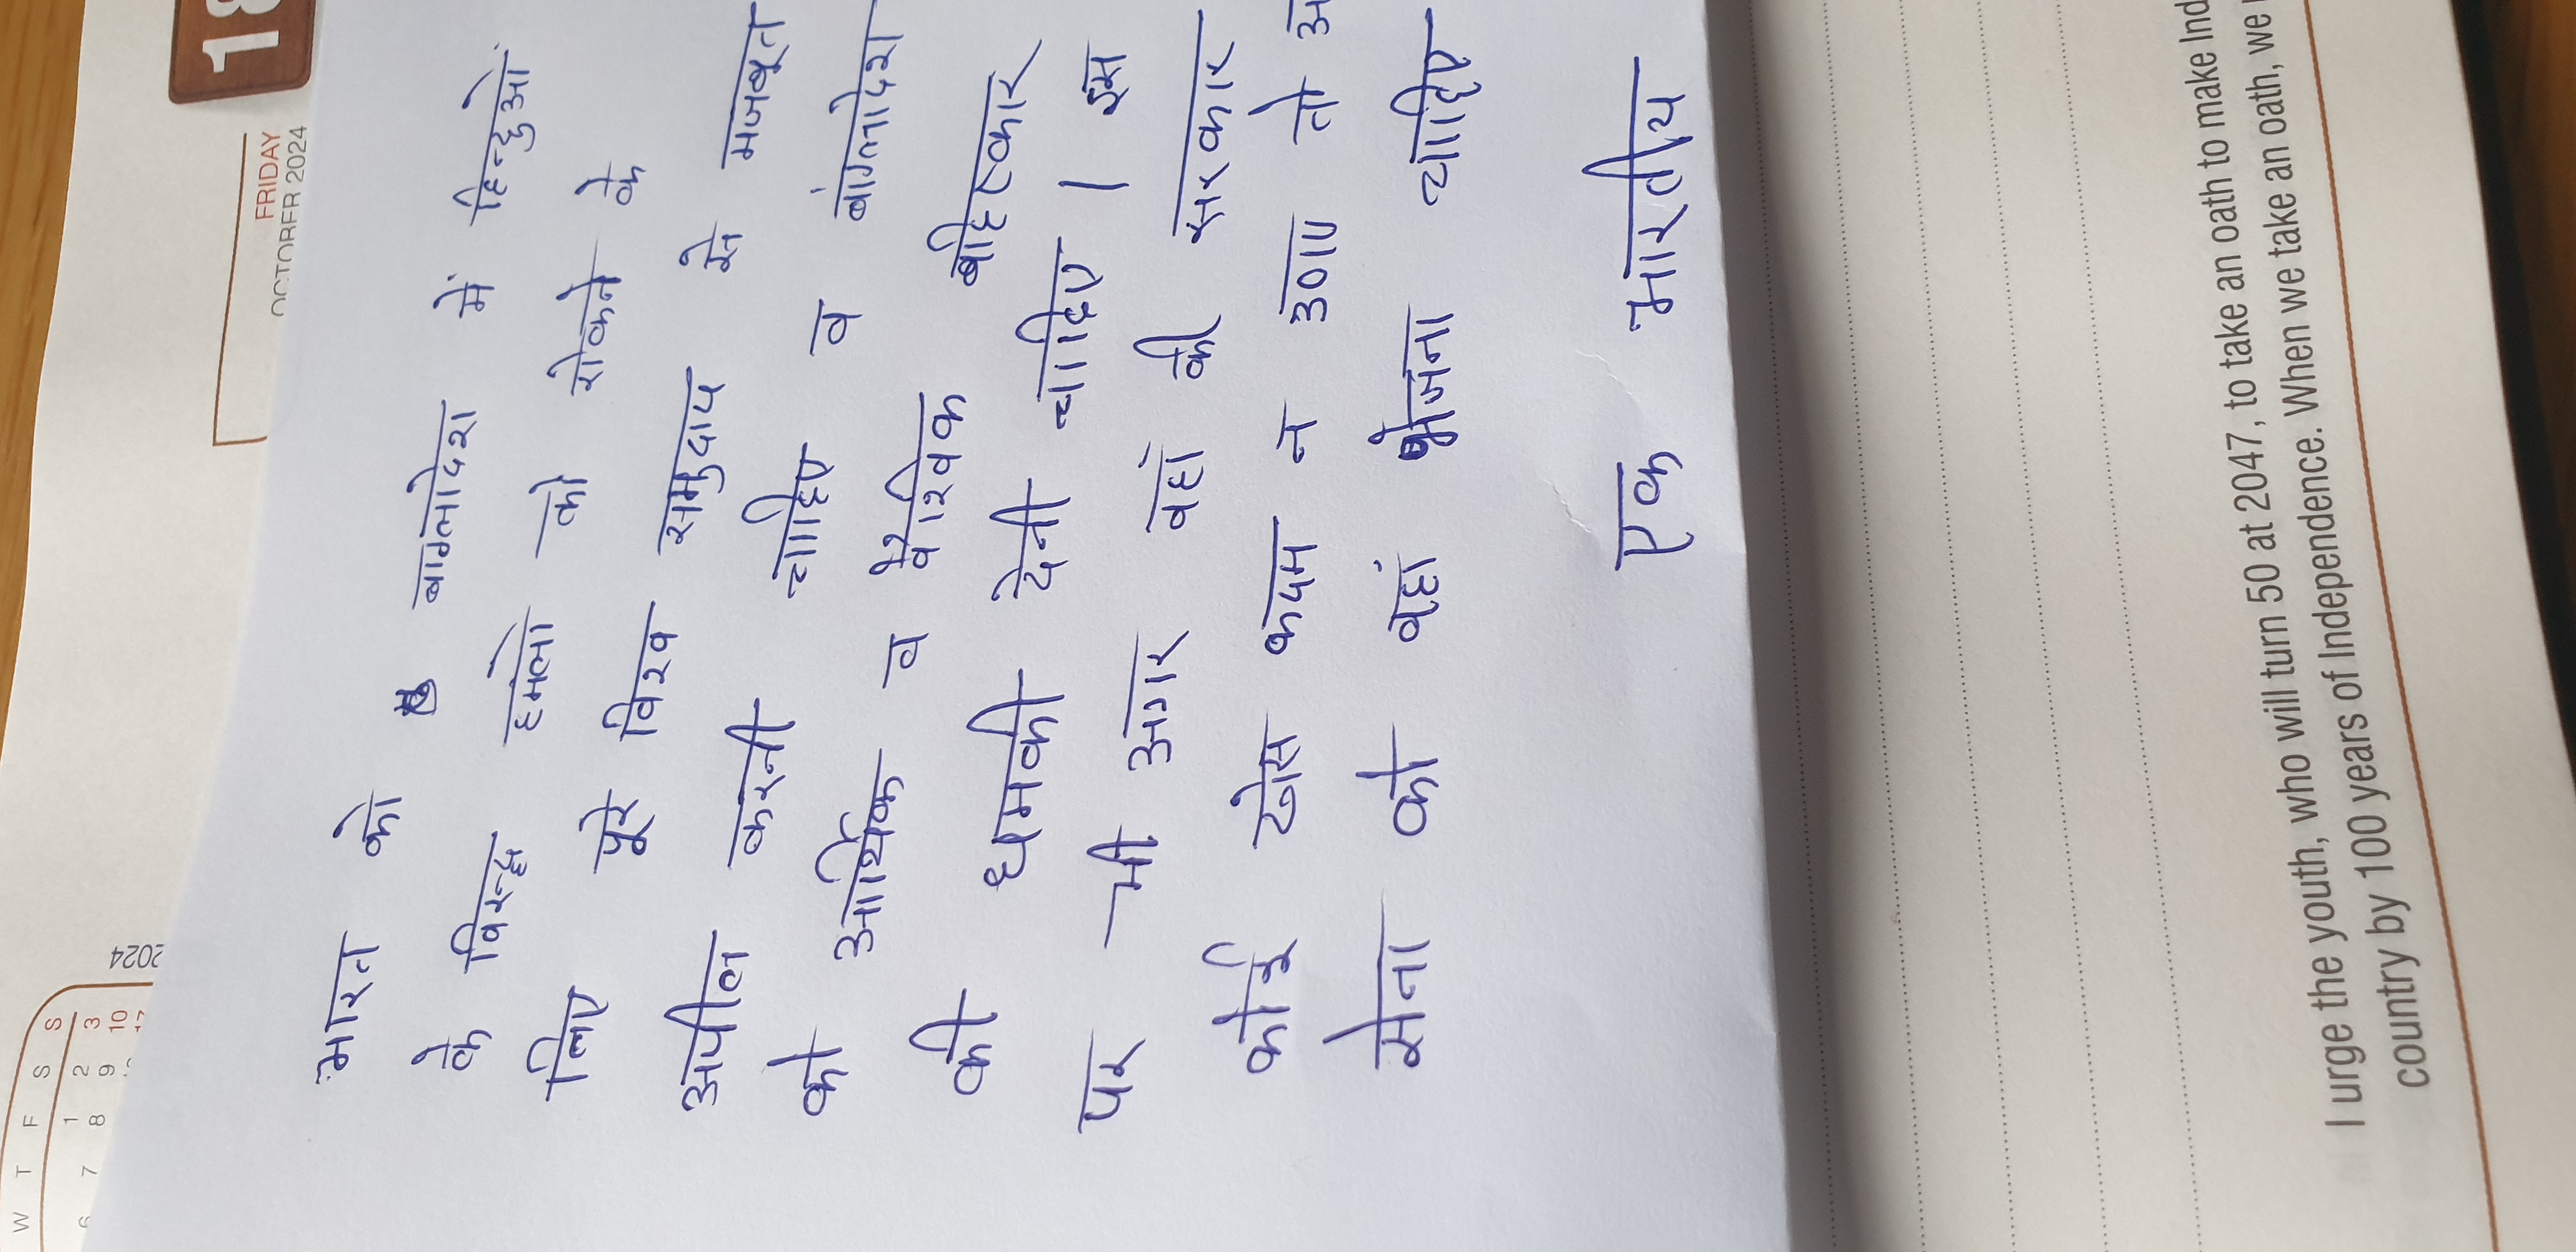 18
FRIDAY
OCTOBER 2024
2024
W T F S S
1 2 3
6 7 8 9 10
17
भारत को बाग्लोदश में हिन्दुओं
के विरुद्ध हमलो को रोकने के
लिए पूरे विश्व समुदाय से मजबूत
अपील करनी चाहिए व बांग्लादेश
को आर्थिक व वैश्विक बहिष्कार
की धमकी देनी चाहिए । इस
पर भी अगर वहां की सरकार
कोई ठोस कदम न उठाए तो अ
सेना को वहां भेजना चाहिए
एक भारतीय
I urge the youth, who will turn 50 at 2047, to take an oath to make Ind
country by 100 years of Independence. When we take an oath, we